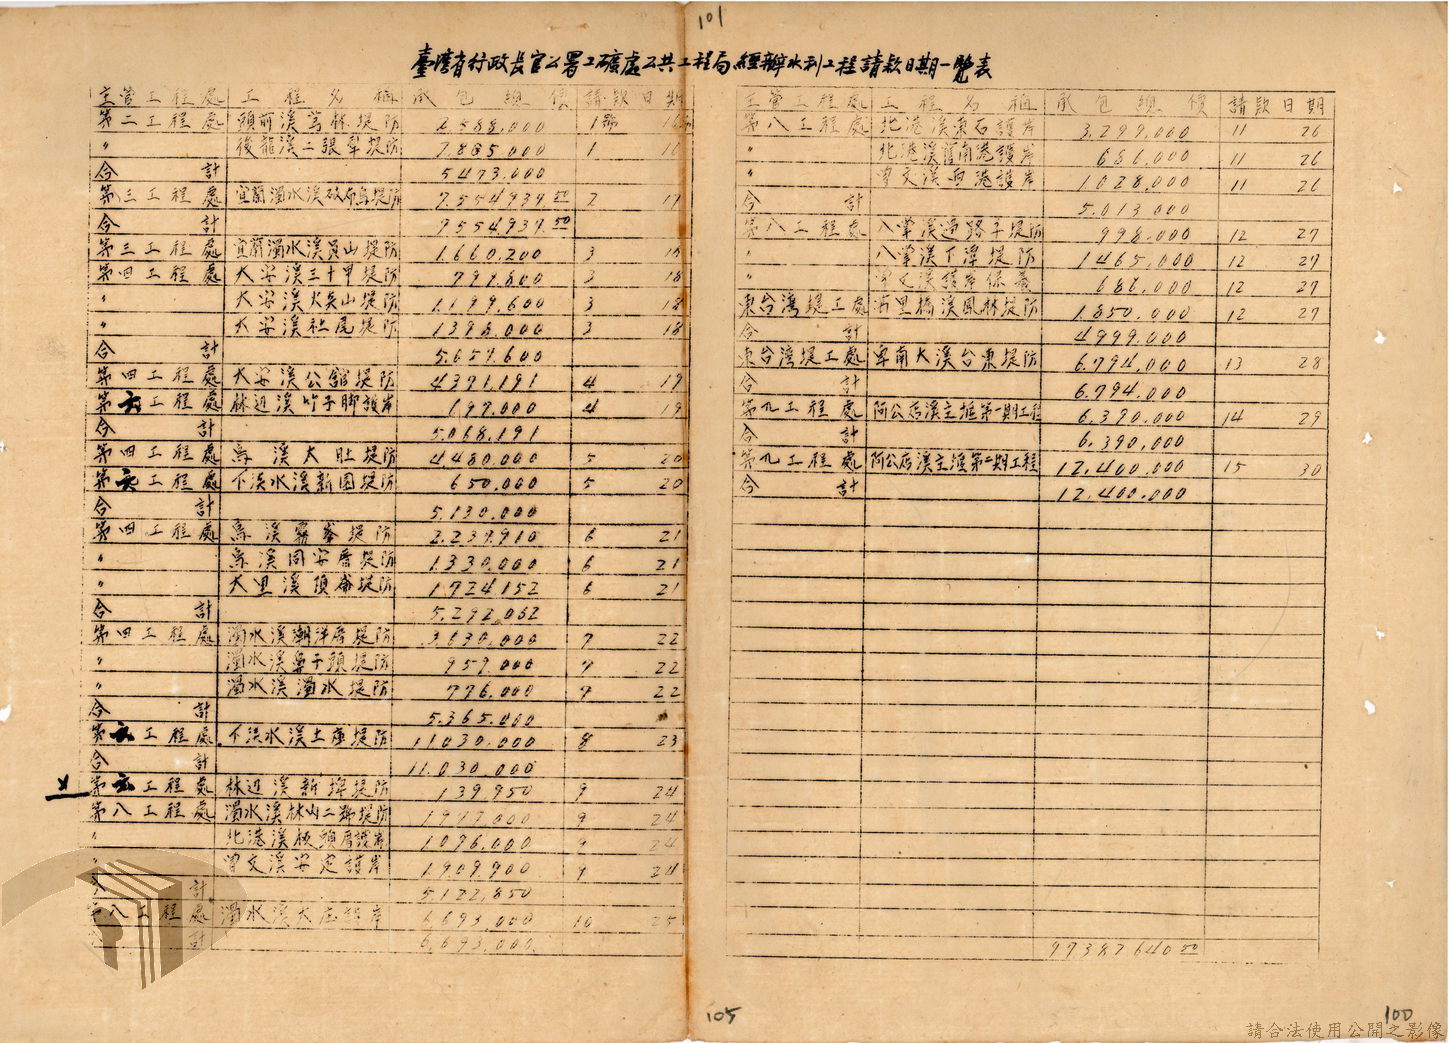 101
臺灣省行政長官公署工礦處公共工程局經辦水利工程請款日期一覽表
主管工程處 工程名稱 承包總價 請款日期
第二工程處 頭前溪 堤防 2,588,000 1號 16
〃 後龍溪二張犁堤防 2,885,000 1 16
合計 5,473,000
第三工程處 宜蘭濁水溪破布烏堤防 9,554,939.50 2 17
合計 9,554,939.50
第三工程處 宜蘭濁水溪員山堤防 1,660,200 3 18
第四工程處 大安溪三十甲堤防 799,800 3 18
〃 大安溪火炎山堤防 1,199,600 3 18
〃 大安溪社尾堤防 1,398,000 3 18
合計 5,057,600
第四工程處 大安溪公館堤防 4,371,191 4 19
第六工程處 林邊溪竹子脚護岸 697,000 4 19
合計 5,068,191
第四工程處 烏溪大肚堤防 4,480,000 5 20
第六工程處 下淡水溪新園堤防 650,000 5 20
合計 5,130,000
第四工程處 烏溪霧峯堤防 2,237,910 6 21
〃 烏溪同安厝堤防 1,330,000 6 21
〃 大里溪頂崙堤防 1,724,152 6 21
合計 5,292,062
第四工程處 濁水溪潮洋厝堤防 3,630,000 7 22
〃 濁水溪鼻子頭堤防 959,000 7 22
〃 濁水溪濁水堤防 776,000 7 22
合計 5,365,000
第六工程處 下淡水溪土庫堤防 11,030,000 8 23
合計 11,030,000
第六工程處 林邊溪新埤堤防 139,950 9 24
第八工程處 濁水溪林山二號堤防 1,997,000 9 24
〃 北港溪 頭厝護岸 1,076,000 9 24
〃 曾文溪安定護岸 1,909,900 9 24
計 5,122,850
第八工程處 濁水溪大庄護岸 6,693,000 10 25
計 6,693,000
主管工程處 工程名稱 承包總價 請款日期
第八工程處 北港溪東石護岸 3,299,000 11 26
〃 北港溪舊南港護岸 686,000 11 26
〃 曾文溪西港護岸 1,028,000 11 26
合計 5,013,000
第八工程處 八掌溪過路子堤防 998,000 12 27
〃 八掌溪下潭堤防 1,465,000 12 27
〃 曾文溪護岸保養 686,000 12 27
東台灣堤工處 萬里橋溪鳳林堤防 1,850,000 12 27
合計 4,999,000
東台灣堤工處 卑南大溪台東堤防 6,794,000 13 28
合計 6,794,000
第九工程處 阿公店溪主堰第一期工程 6,390,000 14 29
合計 6,390,000
第九工程處 阿公店溪主堰第二期工程 12,400,000 15 30
合計 12,400,000
97387640.50
105
100
請合法使用公開之影像